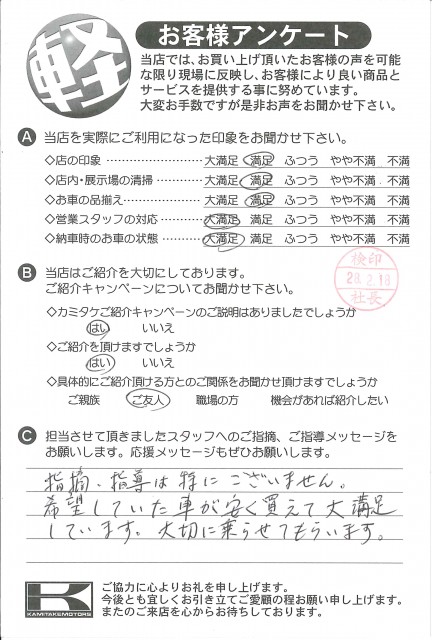 軽
お客様アンケート
当店では、お買い上げ頂いたお客様の声を可能
な限り現場に反映し、お客様により良い商品と
サービスを提供する事に努めています。
大変お手数ですが是非お声をお聞かせ下さい。
A 当店を実際にご利用になった印象をお聞かせ下さい。
◇店の印象 ………………… 大満足 満足 ふつう やや不満 不満
◇店内・展示場の清掃………… 大満足 満足 ふつう やや不満 不満
◇お車の品揃え……………… 大満足 満足 ふつう やや不満 不満
◇営業スタッフの対応………… 大満足 満足 ふつう やや不満 不満
◇納車時のお車の状態………… 大満足 満足 ふつう やや不満 不満
B 当店はご紹介を大切にしております。
ご紹介キャンペーンについてお聞かせ下さい。
検印
28.2.18
社長
◇カミタケご紹介キャンペーンのご説明はありましたでしょうか
はい いいえ
◇ご紹介を頂けますでしょうか
はい いいえ
◇具体的にご紹介頂ける方とのご関係をお聞かせ頂けますでしょうか
ご親族 ご友人 職場の方 機会があれば紹介したい
C 担当させて頂きましたスタッフへのご指摘、ご指導メッセージを
お願いします。応援メッセージもぜひお願いします。
指摘・指導は特にございません。
希望していた車が安く買えて大満足
しています。大切に乗らせてもらいます。
K
KAMITAKEMOTORS
ご協力に心よりお礼を申し上げます。
今後とも宜しくお引き立てご愛顧の程お願い申し上げます。
またのご来店を心からお待ちしております。